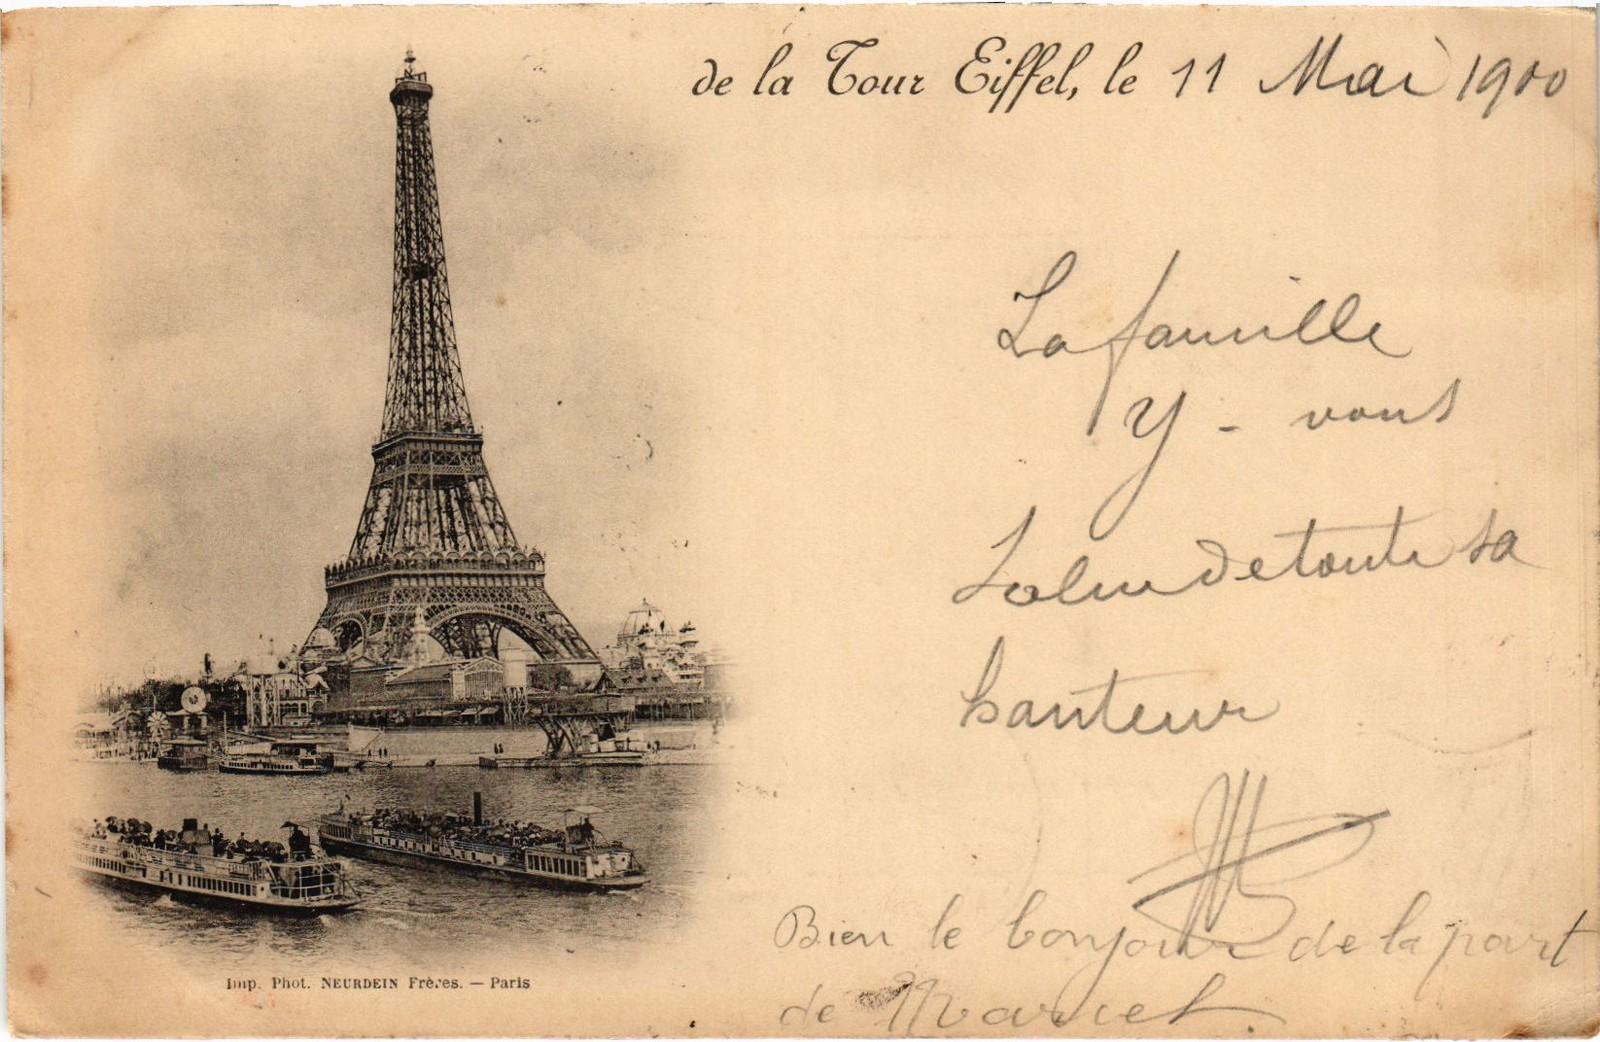 de la Tour Eiffel, le 11 Mai 1900
La famille
Y - vous
Salue de toute sa
hauteur
Bien le bonjour de la part
de Marcel
Imp. Phot. NEURDEIN Frères. — Paris